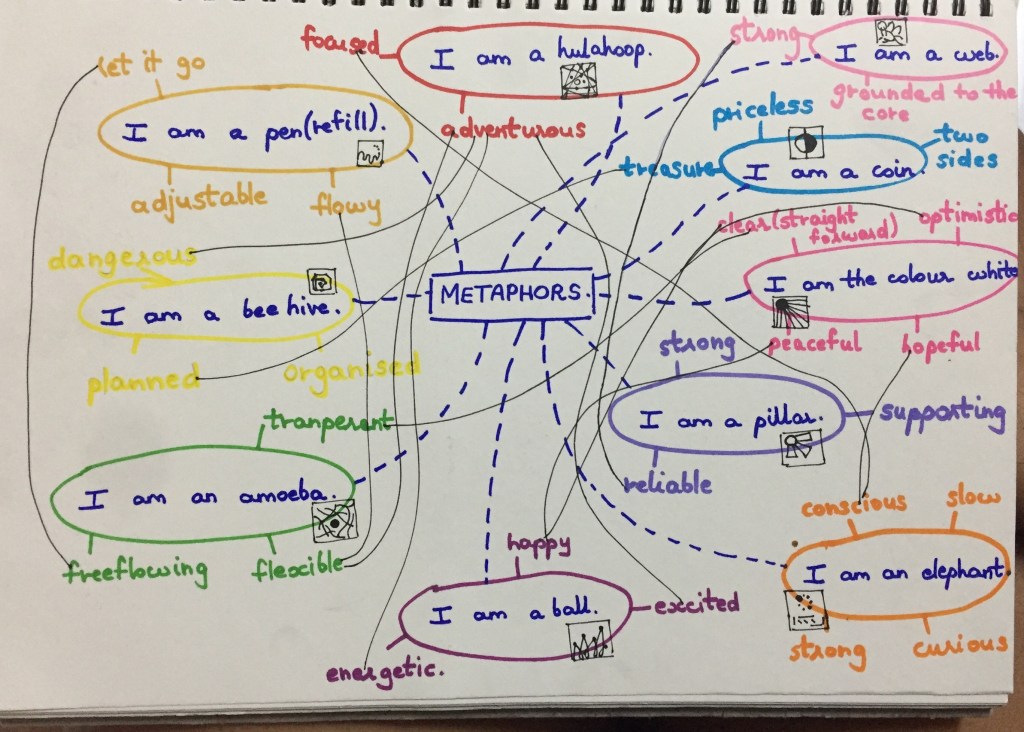 focused
I am a hulahoop.
adventurous
strong
I am a web.
grounded to the
core
let it go
I am a pen(refill).
adjustable
flowy
priceless
treasure
I am a coin.
two
sides
clear(straight
forward)
optimistic
I am the colour white
peaceful
hopeful
dangerous
I am a bee hive.
planned
organised
METAPHORS.
strong
I am a pillar.
supporting
reliable
tranperent
I am an amoeba.
freeflowing
flexcible
happy
I am a ball.
excited
energetic.
conscious
slow
I am an elephant.
strong
curious